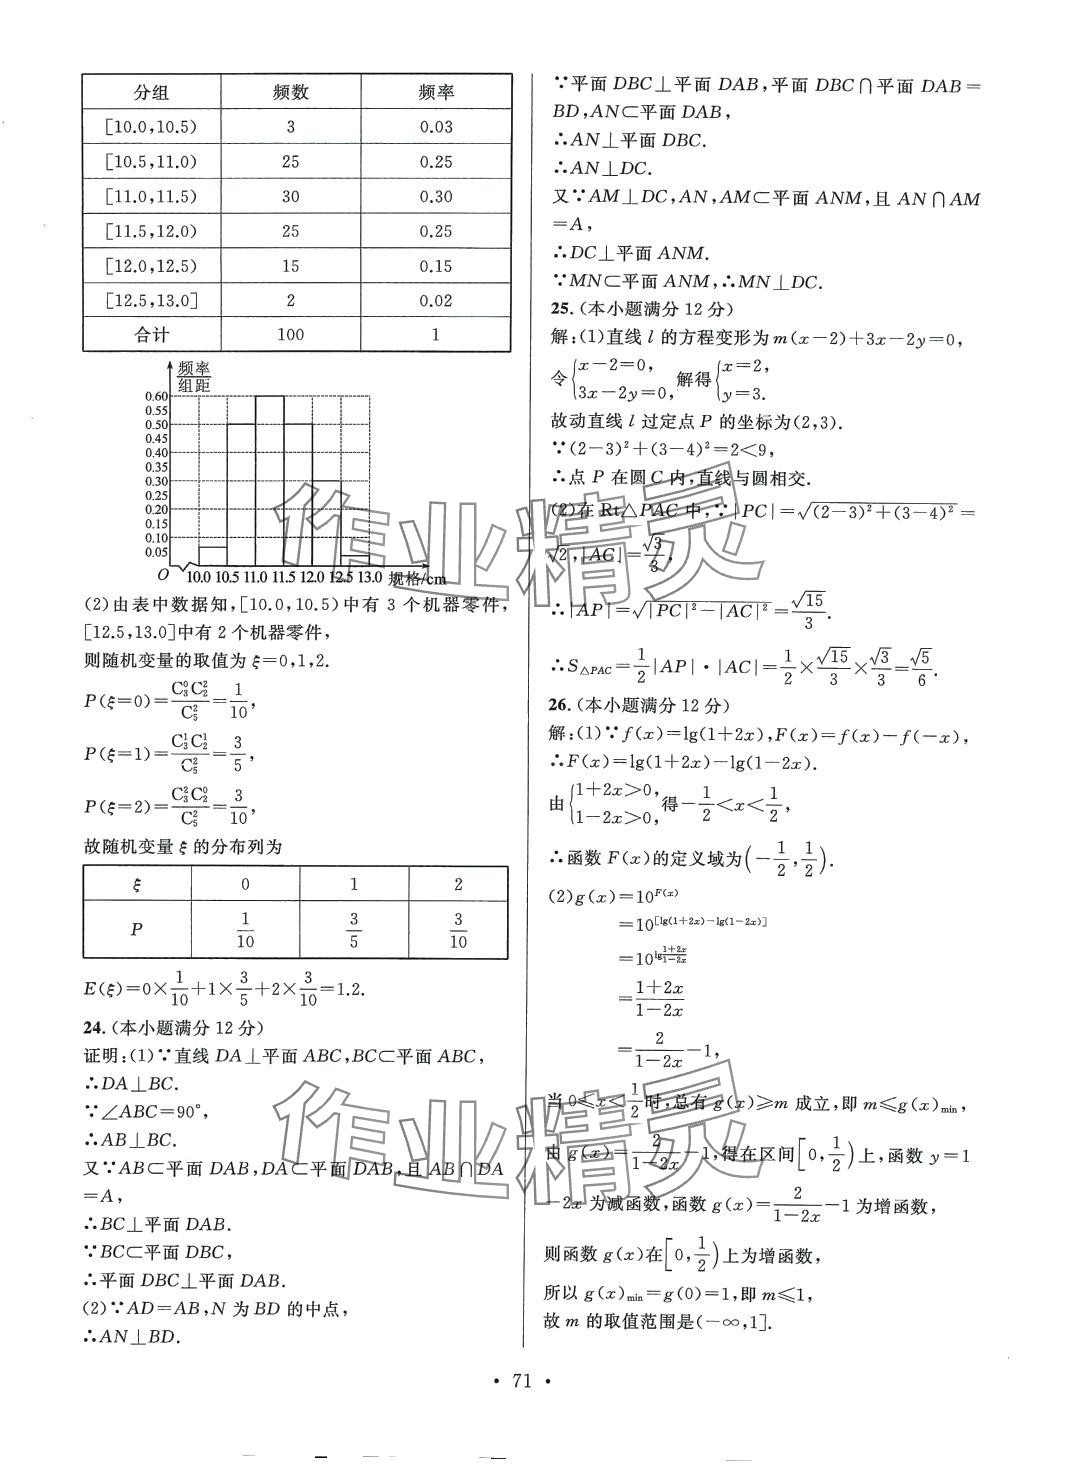 分组 频数 频率
[10.0,10.5) 3 0.03
[10.5,11.0) 25 0.25
[11.0,11.5) 30 0.30
[11.5,12.0) 25 0.25
[12.0,12.5) 15 0.15
[12.5,13.0] 2 0.02
合计 100 1
频率/组距
0.60
0.55
0.50
0.45
0.40
0.35
0.30
0.25
0.20
0.15
0.10
0.05
O 10.0 10.5 11.0 11.5 12.0 12.5 13.0 规格/cm
(2)由表中数据知,[10.0,10.5)中有 3 个机器零件,
[12.5,13.0]中有 2 个机器零件,
则随机变量的取值为 ξ=0,1,2.
P(ξ=0)=C₃⁰C₂²/C₅²=1/10,
P(ξ=1)=C₃¹C₂¹/C₅²=3/5,
P(ξ=2)=C₃²C₂⁰/C₅²=3/10,
故随机变量 ξ 的分布列为
ξ 0 1 2
P 1/10 3/5 3/10
E(ξ)=0×1/10+1×3/5+2×3/10=1.2.
24.(本小题满分 12 分)
证明:(1)∵直线 DA⊥平面 ABC,BC⊂平面 ABC,
∴DA⊥BC.
∵∠ABC=90°,
∴AB⊥BC.
又∵AB⊂平面 DAB,DA⊂平面 DAB,且 AB∩DA
=A,
∴BC⊥平面 DAB.
∵BC⊂平面 DBC,
∴平面 DBC⊥平面 DAB.
(2)∵AD=AB,N 为 BD 的中点,
∴AN⊥BD.
∵平面 DBC⊥平面 DAB,平面 DBC∩平面 DAB=
BD,AN⊂平面 DAB,
∴AN⊥平面 DBC.
∴AN⊥DC.
又∵AM⊥DC,AN,AM⊂平面 ANM,且 AN∩AM
=A,
∴DC⊥平面 ANM.
∵MN⊂平面 ANM,∴MN⊥DC.
25.(本小题满分 12 分)
解:(1)直线 l 的方程变形为 m(x-2)+3x-2y=0,
令{x-2=0, 3x-2y=0, 解得{x=2, y=3.
故动直线 l 过定点 P 的坐标为(2,3).
∵(2-3)²+(3-4)²=2<9,
∴点 P 在圆 C 内,直线与圆相交.
(2)在 Rt△PAC 中,∵|PC|=√((2-3)²+(3-4)²)=
√2,|AC|=√3/3,
∴|AP|=√(|PC|²-|AC|²)=√15/3.
∴S△PAC=1/2|AP|·|AC|=1/2×√15/3×√3/3=√5/6.
26.(本小题满分 12 分)
解:(1)∵f(x)=lg(1+2x),F(x)=f(x)-f(-x),
∴F(x)=lg(1+2x)-lg(1-2x).
由{1+2x>0, 1-2x>0, 得-1/2<x<1/2,
∴函数 F(x)的定义域为(-1/2,1/2).
(2)g(x)=10^F(x)
=10^[lg(1+2x)-lg(1-2x)]
=10^lg (1+2x)/(1-2x)
=(1+2x)/(1-2x)
=2/(1-2x)-1,
当 0≤x<1/2时,总有 g(x)≥m 成立,即 m≤g(x)min,
由 g(x)=2/(1-2x)-1,得在区间[0,1/2)上,函数 y=1
-2x 为减函数,函数 g(x)=2/(1-2x)-1 为增函数,
则函数 g(x)在[0,1/2)上为增函数,
所以 g(x)min=g(0)=1,即 m≤1,
故 m 的取值范围是(-∞,1].
作业精灵
作业精灵
• 71 •